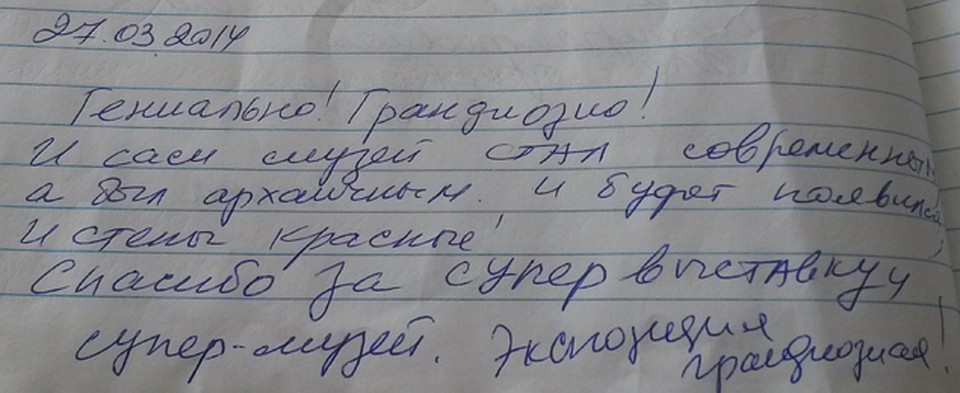 27.03.2014
Гениально! Грандиозно!
И сам музей стал современным,
а был архаичным. И появился
И стены красные!
Спасибо за супер выставку и
супер-музей. Экспозиция
грандиозная!